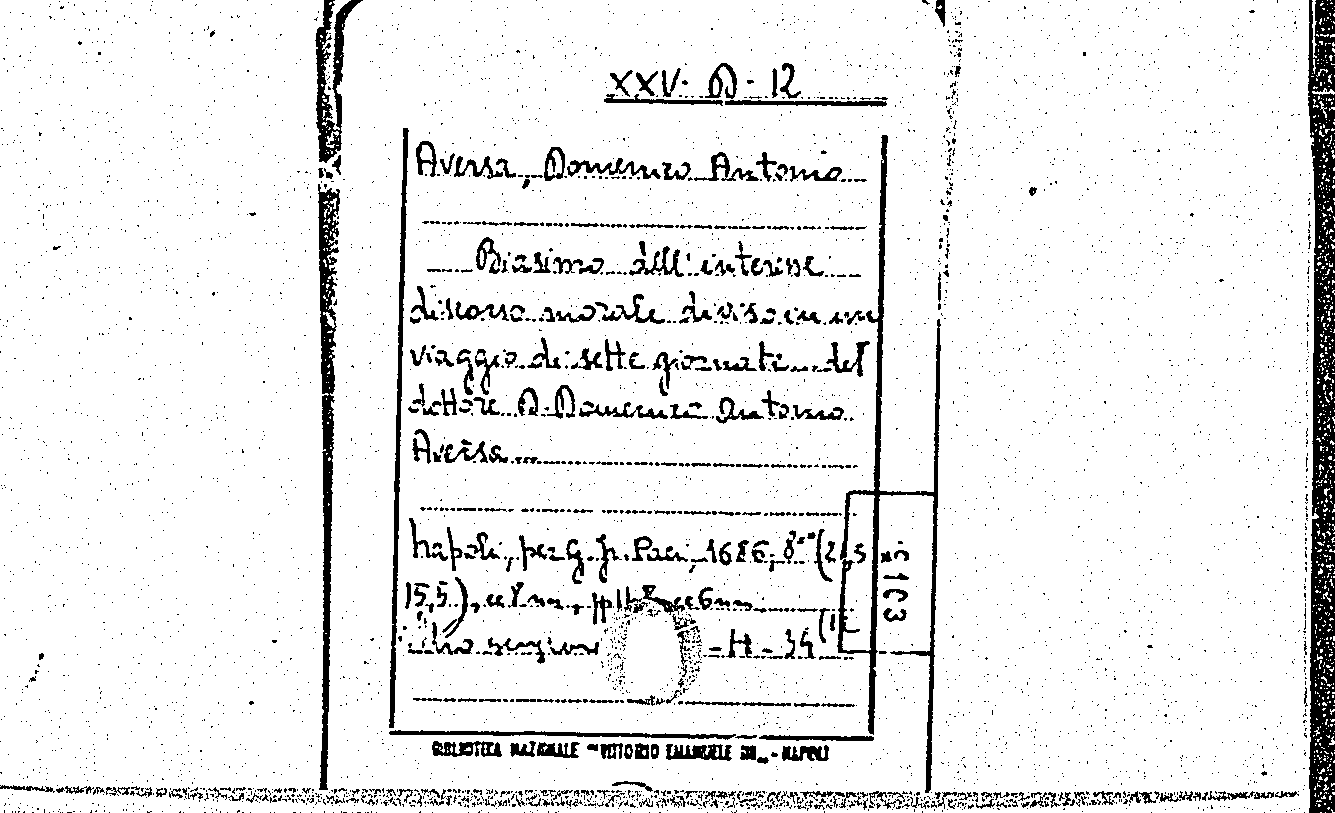 XXV. D - 12
Aversa, Domenico Antonio
Biasimo dell'interesse
discorso morale diviso in un
viaggio di sette giornate... del
dottore D. Domenico Antonio
Aversa...
Napoli, per G. Fr. Paci, 1686, 8° (21,5
15,5),
- H - 34
BIBLIOTECA NAZIONALE "VITTORIO EMANUELE III" - NAPOLI